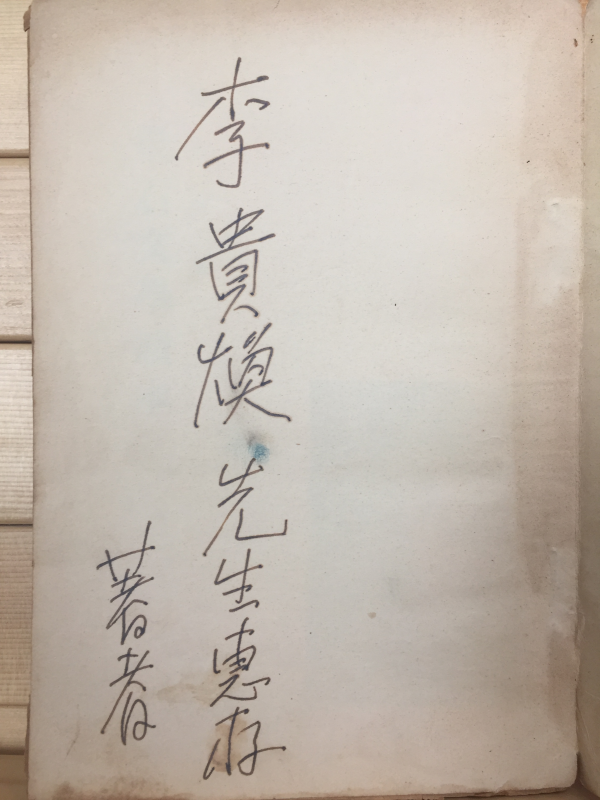 李貴槙先生惠存
著者